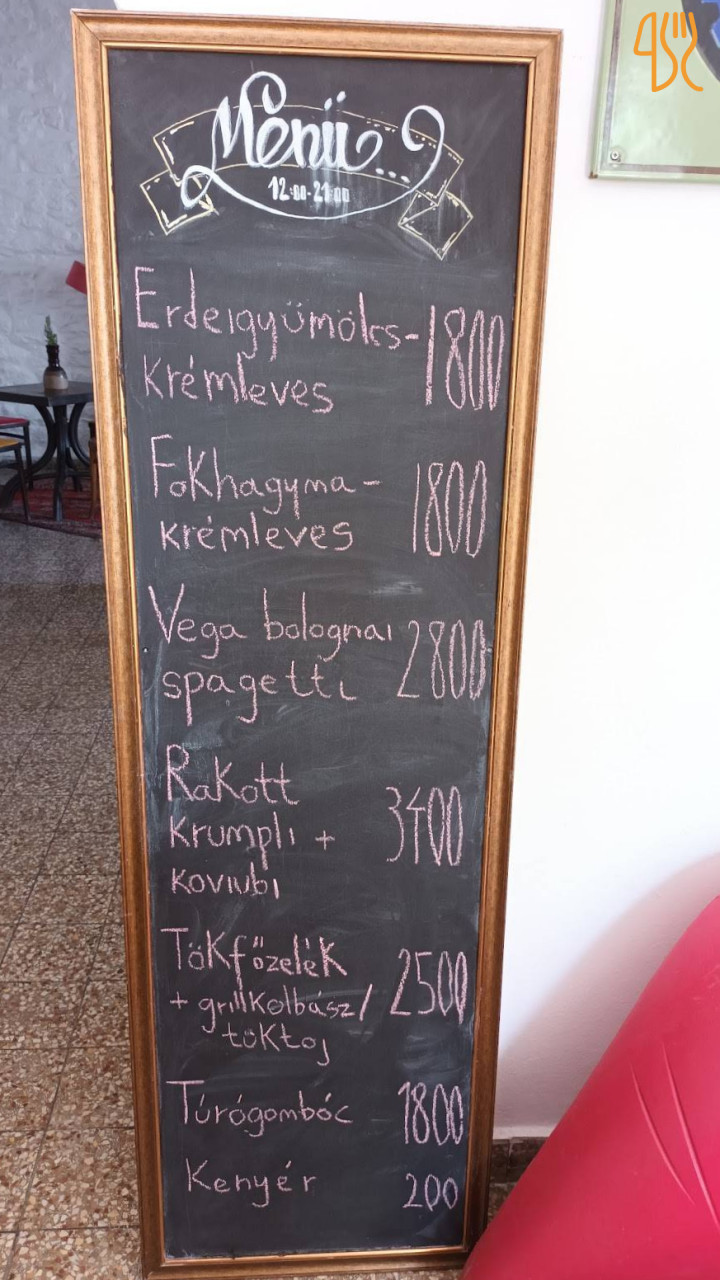 Menü...
12:00-21:00
Erdeigyümölcs- 1800
krémleves
Fokhagyma- 1800
krémleves
Vega bolognai 2800
spagetti
Rakott
krumpli + 3400
koviubi
Tökfőzelék 2500
+ grillkolbász/
töktoj
Túrógombóc 1800
Kenyér 200